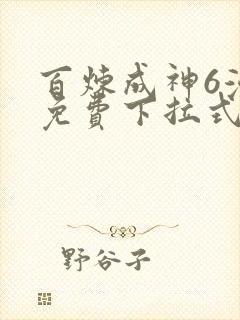 百炼成神6
免費下拉式
野谷子